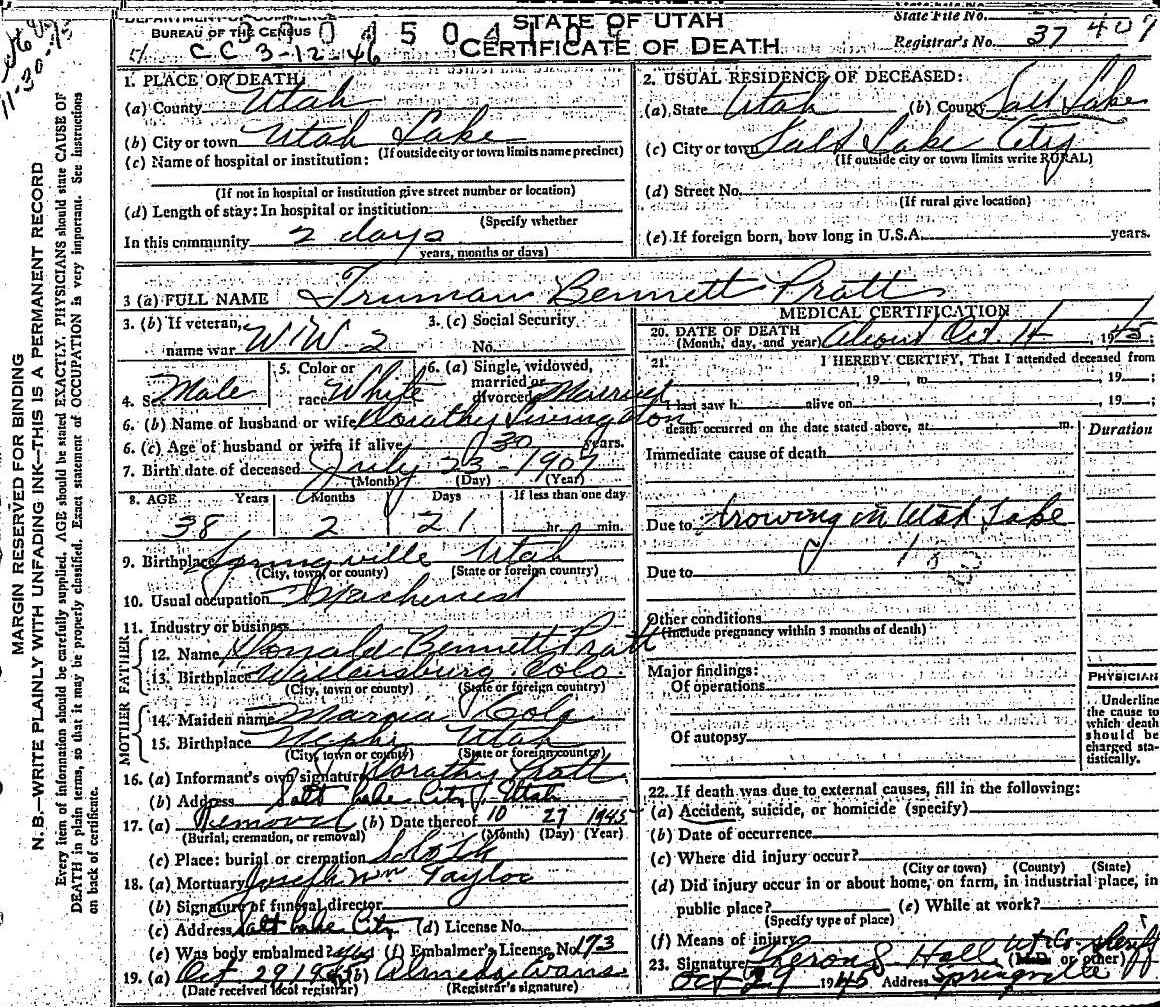 DEPARTMENT OF COMMERCE
BUREAU OF THE CENSUS
C C 3-12-46
STATE OF UTAH
CERTIFICATE OF DEATH
State File No.
Registrar's No. 37 407
11-30-
MARGIN RESERVED FOR BINDING
N. B.—WRITE PLAINLY WITH UNFADING INK—THIS IS A PERMANENT RECORD
Every item of information should be carefully supplied. AGE should be stated EXACTLY. PHYSICIANS should state CAUSE OF
DEATH in plain terms, so that it may be properly classified. Exact statement of OCCUPATION is very important. See instructions
on back of certificate.
1. PLACE OF DEATH
(a) County Utah
(b) City or town Utah Lake
(If outside city or town limits name precinct)
(c) Name of hospital or institution:
(If not in hospital or institution give street number or location)
(d) Length of stay: In hospital or institution
(Specify whether
In this community 2 days
years, months or days)
2. USUAL RESIDENCE OF DECEASED:
(a) State Utah (b) County Salt Lake
(c) City or town Salt Lake City
(If outside city or town limits write RURAL)
(d) Street No.
(If rural give location)
(e) If foreign born, how long in U.S.A. years.
3 (a) FULL NAME Truman Bennett Pratt
3. (b) If veteran, name war W W 2
3. (c) Social Security No.
4. Sex Male
5. Color or race White
6. (a) Single, widowed, married or divorced Married
6. (b) Name of husband or wife Dorathy Livingston
6. (c) Age of husband or wife if alive 30 years.
7. Birth date of deceased July 23 - 1907
(Month) (Day) (Year)
8. AGE Years Months Days If less than one day
38 2 21 hr. min.
9. Birthplace Springville Utah
(City, town, or county) (State or foreign country)
10. Usual occupation Machenest
11. Industry or business
FATHER
12. Name Donald Bennett Pratt
13. Birthplace Walsenburg Colo
(City, town or county) (State or foreign country)
MOTHER
14. Maiden name Marcia Cole
15. Birthplace Nephi Utah
(City, town or county) (State or foreign country)
16. (a) Informant's own signature Dorathy Pratt
(b) Address Salt Lake City, Utah
17. (a) Removal (b) Date thereof 10 27 1945
(Burial, cremation, or removal) (Month) (Day) (Year)
(c) Place: burial or cremation
18. (a) Mortuary Joseph Wm Taylor
(b) Signature of funeral director
(c) Address Salt Lake City (d) License No.
(e) Was body embalmed? yes (f) Embalmer's License No. 173
19. (a) Oct 29 1945 (b) Almeda Evans
(Date received local registrar) (Registrar's signature)
MEDICAL CERTIFICATION
20. DATE OF DEATH About Oct. 14, 1945;
(Month, day, and year)
21. I HEREBY CERTIFY, That I attended deceased from
, 19 , to , 19 ;
I last saw h alive on , 19 ;
death occurred on the date stated above, at m.
Duration
Immediate cause of death
Due to drowing in Utah Lake
183
Due to
Other conditions
(Include pregnancy within 3 months of death)
Major findings:
Of operations
Of autopsy
PHYSICIAN
Underline
the cause to
which death
should be
charged sta-
tistically.
22. If death was due to external causes, fill in the following:
(a) Accident, suicide, or homicide (specify)
(b) Date of occurrence
(c) Where did injury occur?
(City or town) (County) (State)
(d) Did injury occur in or about home, on farm, in industrial place, in
public place? (e) While at work?
(Specify type of place)
(f) Means of injury
23. Signature Theron S Hall Ut. Co. Sheriff
(M.D. or other)
Oct 29 1945 Address Springville